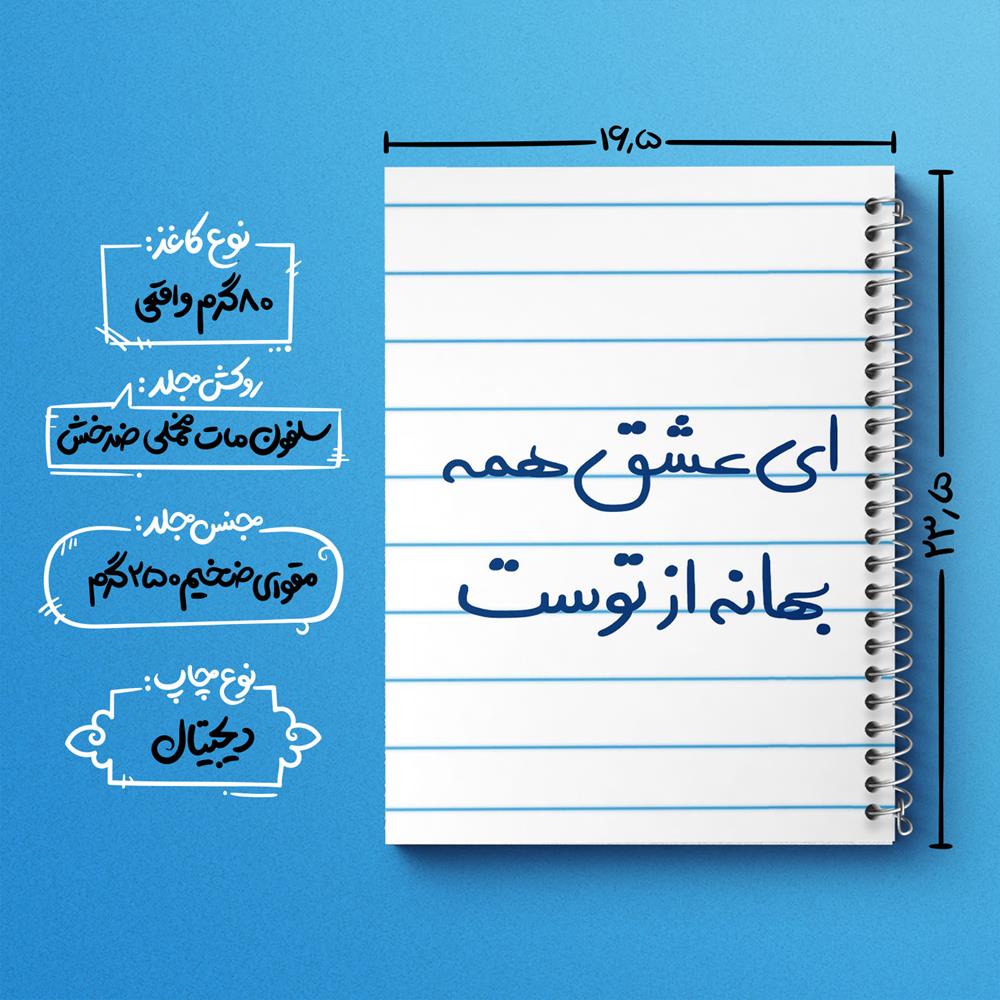 ۱۶,۵
۲۳,۵
ای عشق همه
بهانه از توست
نوع کاغذ:
۸۰گرم واقعی
روکش جلد:
سلفون مات مخملی ضدخش
جنس جلد:
مقوای ضخیم ۲۵۰ گرم
نوع چاپ:
دیجیتال